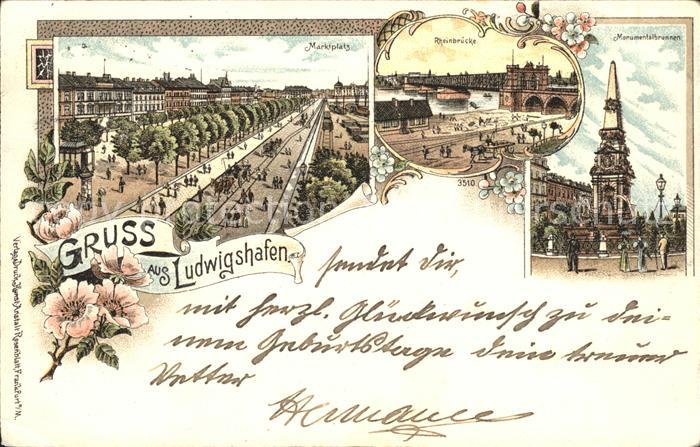 Marktplatz
Rheinbrücke
Monumentalbrunnen
3510
GRUSS
AUS Ludwigshafen
sendet Dir,
mit herzl. Glückwunsch zu dei-
nem Geburtstage dein treuer
Vetter
Hermann